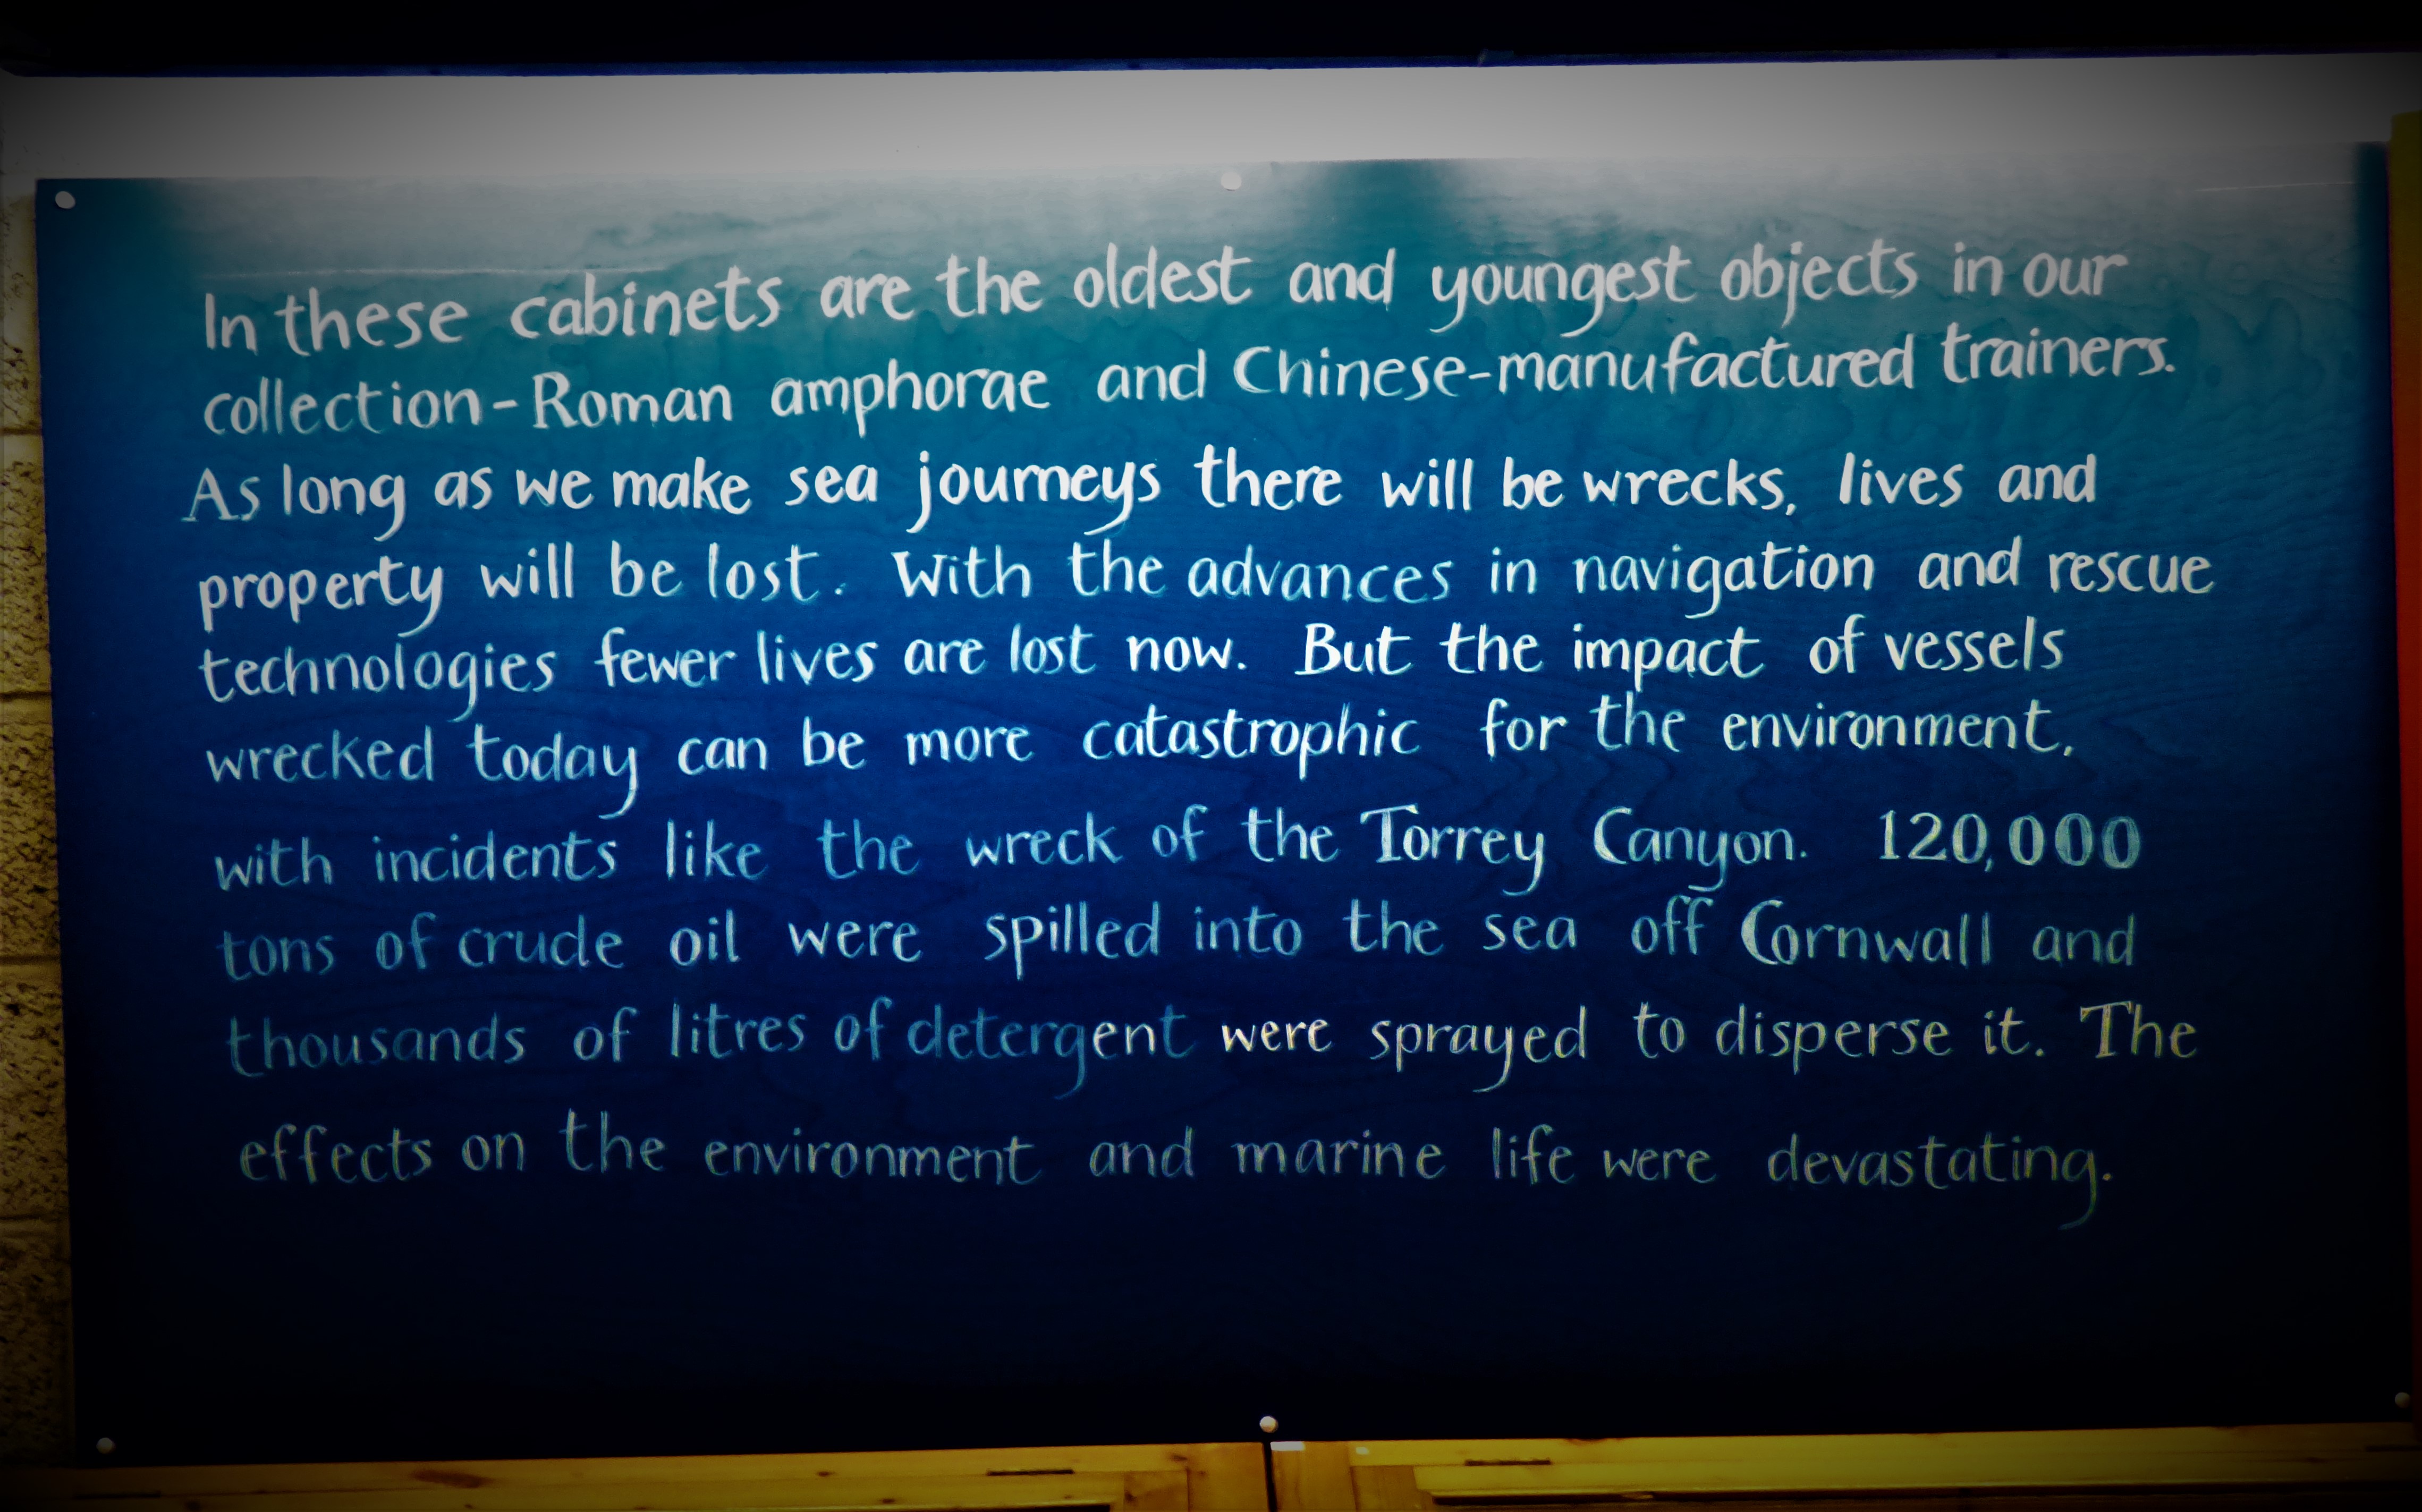 In these cabinets are the oldest and youngest objects in our
collection - Roman amphorae and Chinese-manufactured trainers.
As long as we make sea journeys there will be wrecks, lives and
property will be lost. With the advances in navigation and rescue
technologies fewer lives are lost now. But the impact of vessels
wrecked today can be more catastrophic for the environment,
with incidents like the wreck of the Torrey Canyon. 120,000
tons of crude oil were spilled into the sea off Cornwall and
thousands of litres of detergent were sprayed to disperse it. The
effects on the environment and marine life were devastating.